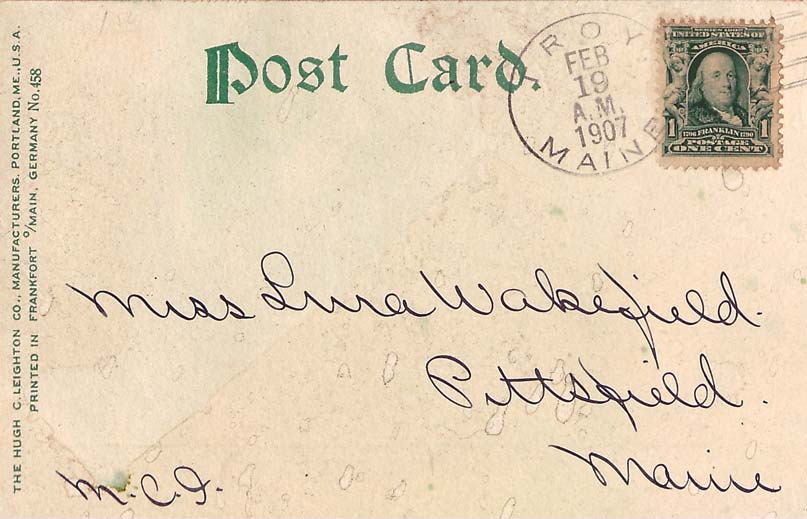 THE HUGH C. LEIGHTON CO., MANUFACTURERS, PORTLAND, ME., U.S.A.
PRINTED IN FRANKFORT o/MAIN, GERMANY No. 458
Post Card.
TROY
FEB
19
A.M.
1907
MAINE
SERIES 1902
UNITED STATES OF
AMERICA
1 1706 FRANKLIN 1790 1
POSTAGE
ONE CENT
Miss Lura Wakefield.
Pittsfield.
Maine
M.C.I.